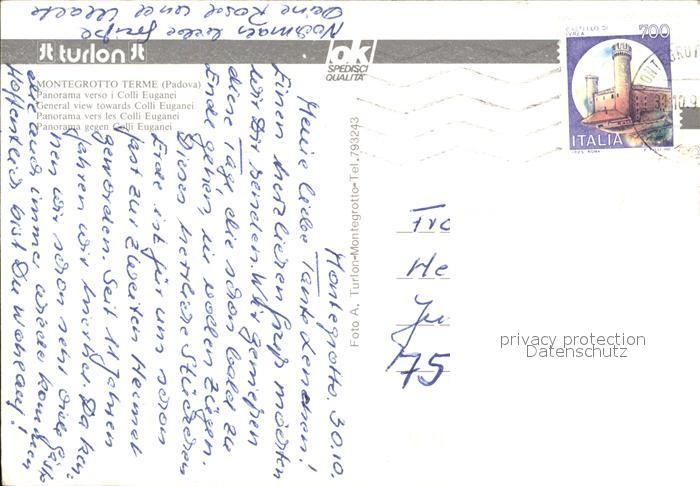 turlon
ok
SPEDISCI
QUALITA'
MONTEGROTTO TERME (Padova)
Panorama verso i Colli Euganei
General view towards Colli Euganei
Panorama vers les Colli Euganei
Panorama gegen Colli Euganei
Foto A. Turlon-Montegrotto-Tel.793243
CASTELLO DI
IVREA
700
ITALIA
Montegrotto, 30.10.
Meine liebe Tante Lenchen!
Einen herzlichen Gruß möchten
wir Dir senden. Wir genießen
diese Tage die schon bald zu
Ende gehen, in vollen Zügen.
Dieses herrliche Stückchen
Erde ist für uns schon
fast zur zweiten Heimat
geworden. Seit 11 Jahren
fahren wir hierher. Da ken-
nen wir schon sehr viele Gäste
die auch immer wieder kommen
Hoffentlich bist Du wohlauf!
Nochmals liebe Grüße
Deine Rosel und
Fr
He
Ju
75
privacy protection
Datenschutz